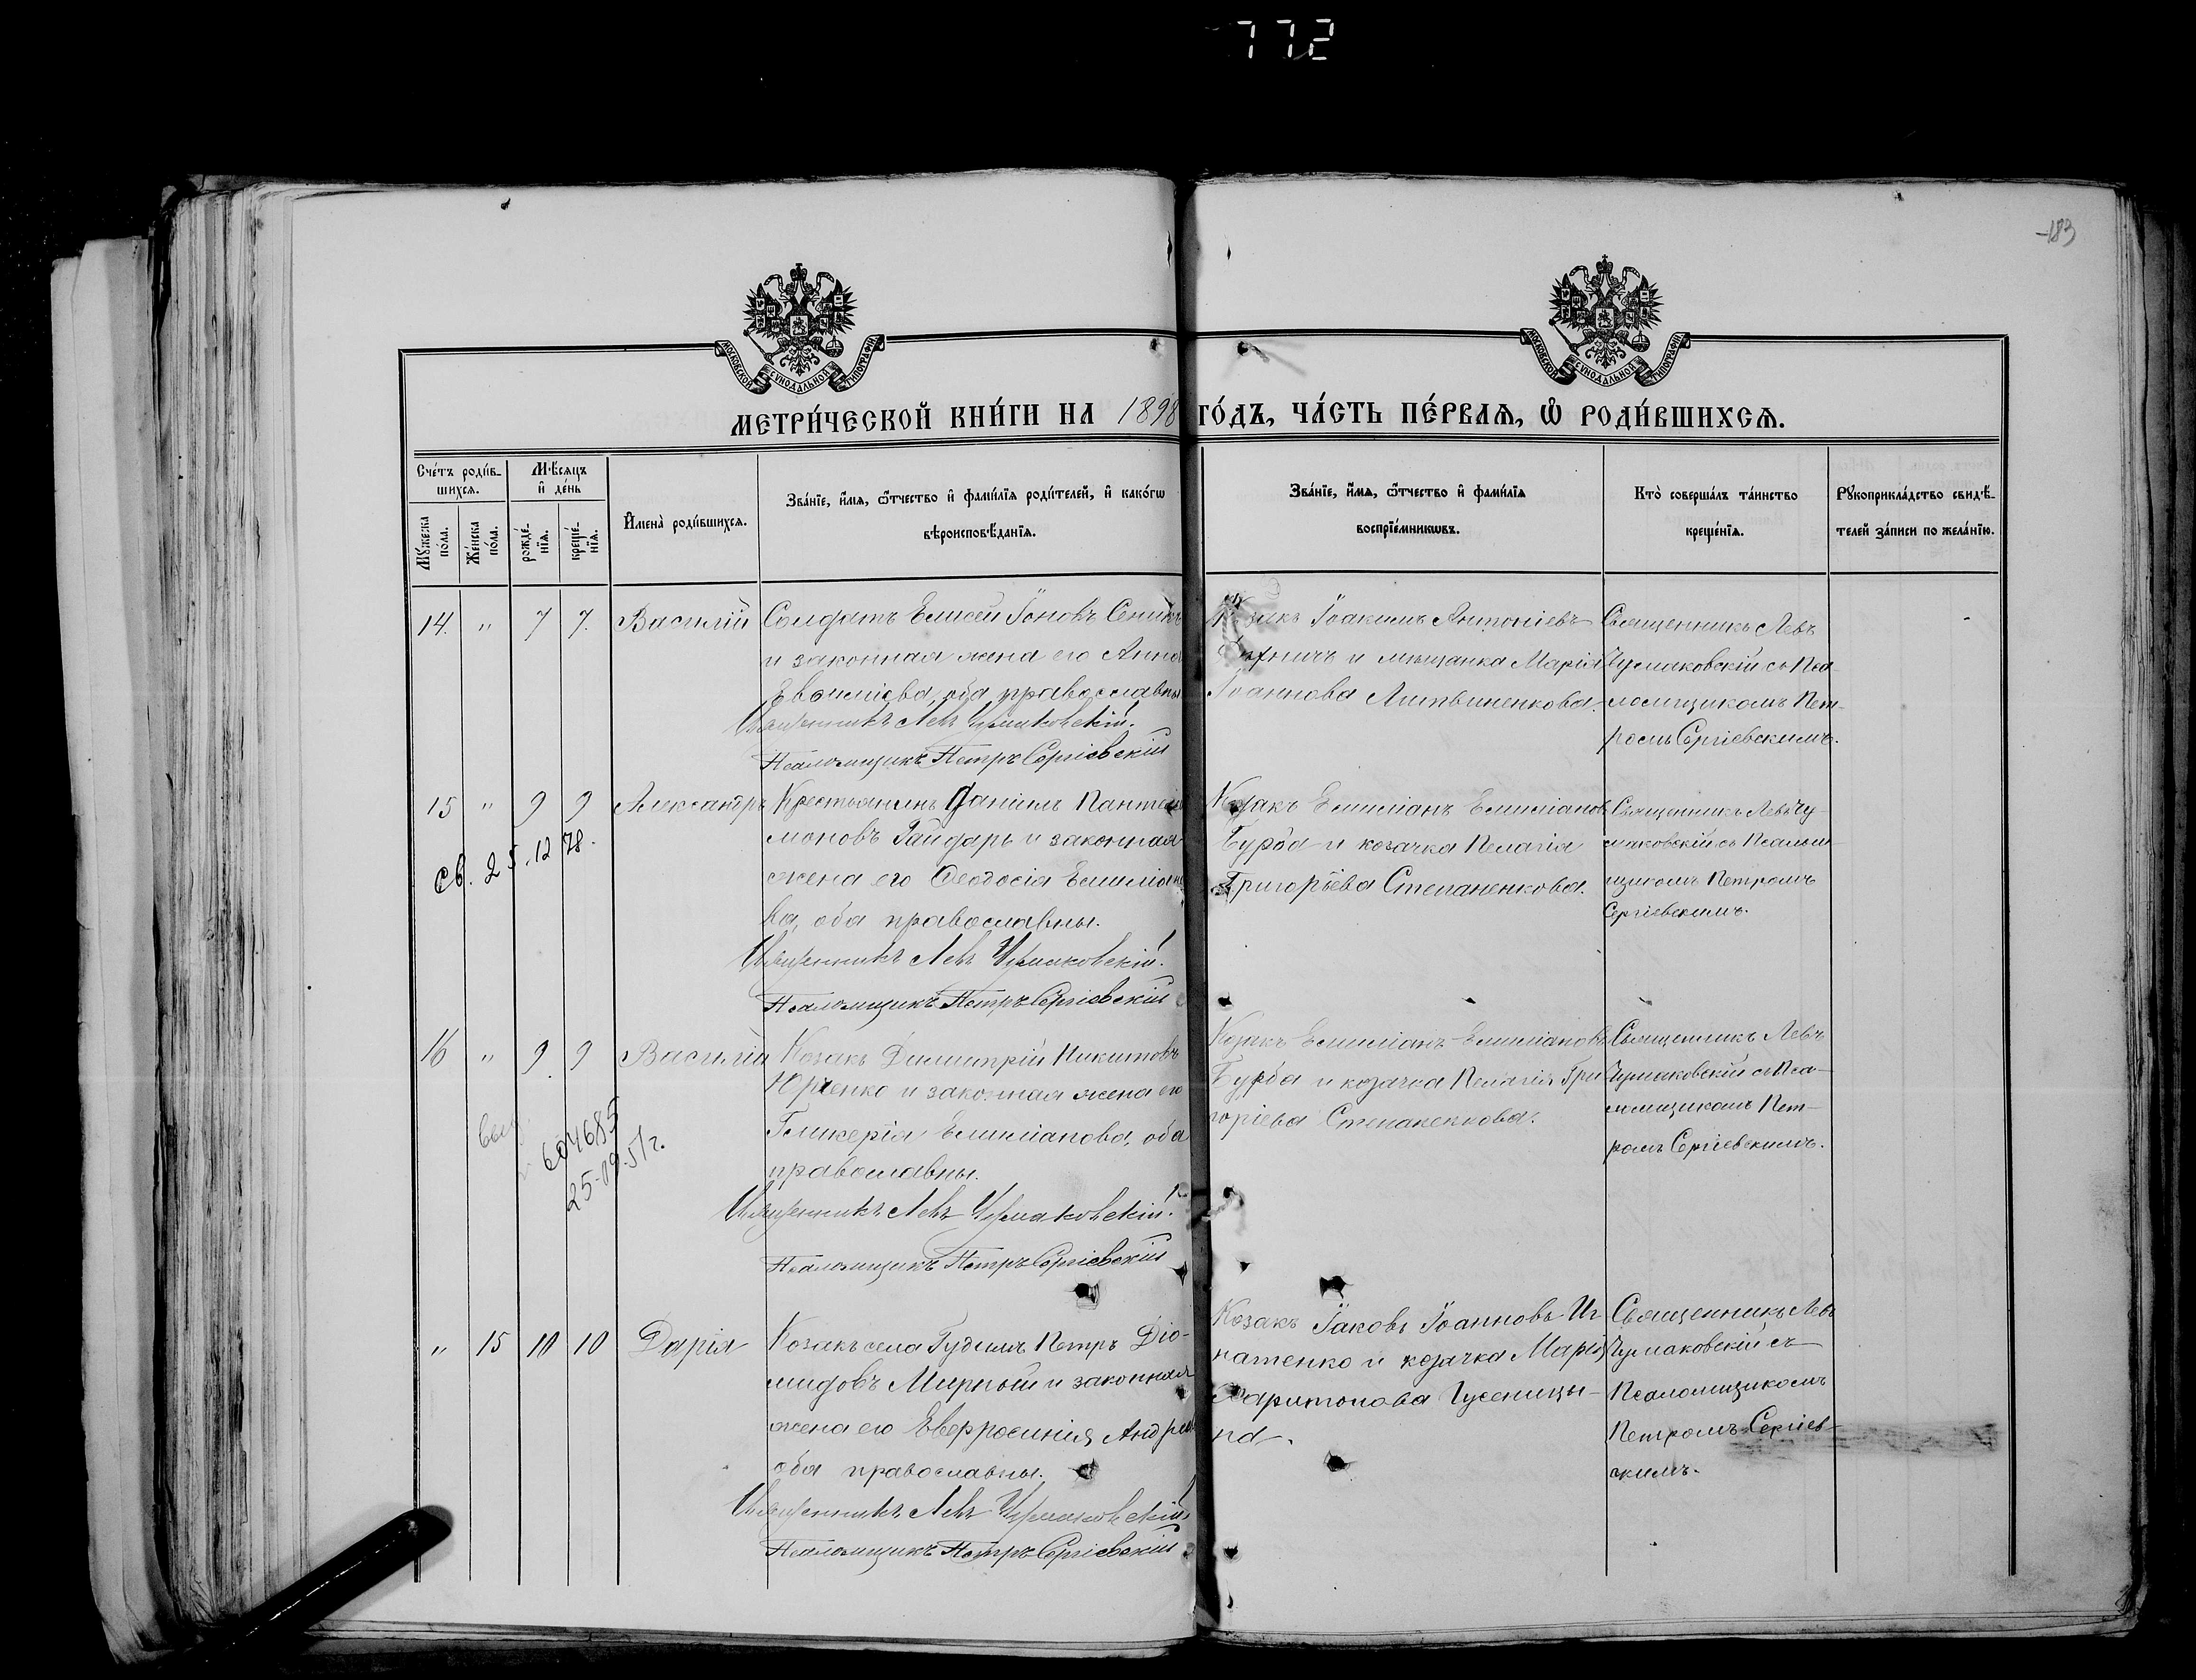 772
183
МОСКОВСКОЙ СѴНОДАЛЬНОЙ ТИПОГРАФІИ
МОСКОВСКОЙ СѴНОДАЛЬНОЙ ТИПОГРАФІИ
МЕТРИ́ЧЕСКОЙ КНИ́ГИ НА 1898 ГО́ДЪ, ЧА́СТЬ ПЕ́РВАѦ, Ѡ РОДИ́ВШИХСѦ.
Сче́тъ роди́в-
шихсѧ.
Мѣсѧцъ
и де́нь
Мꙋ́жеска
по́ла.
Же́нска
по́ла.
рожде́-
нїѧ.
креще́-
нїѧ.
Имена̀ роди́вшихсѧ.
Зва́нїе, и́мѧ, ѻ́тчество и фами́лїѧ роди́телей, и како́гѡ
вѣроисповѣ́данїѧ.
Зва́нїе, и́мѧ, ѻ́тчество и фами́лїѧ
воспрїе́мникѡвъ.
Кто̀ соверша́лъ та́инство
креще́нїѧ.
Рꙋкоприкла́дство свидѣ́-
телей за́писи по жела́нїю.
14. " 7 7. Василій
Солдатъ Елисей Іоновъ
и законная жена его Анна
оба православны
Священникъ Левъ Чумаковскій.
Псаломщикъ Петръ Сергіевскій
Іоакимъ Антоніевъ
и мѣщанка Марія
Іоаннова Литвиненкова.
Священникъ Левъ
Чумаковскій съ Пса-
ломщикомъ Пет-
ромъ Сергіевскимъ.
15 " 9 9 Александръ
Крестьянинъ Даніилъ Пантелеи-
моновъ Гайдаръ и законная
жена его Ѳеодосія Емиліано-
ва, оба православны.
Священникъ Левъ Чумаковскій.
Псаломщикъ Петръ Сергіевскій
Козакъ Емиліанъ Емиліановъ
Бурба и козачка Пелагія
Григорьева Степаненкова.
Священникъ Левъ Чу-
маковскій съ Псалом-
щикомъ Петромъ
Сергіевскимъ.
Св. 25.12.78.
16 " 9 9 Василій
Козакъ Димитрій Никитовъ
Юрченко и законная жена его
Гликерія Емиліанова, оба
православны.
Священникъ Левъ Чумаковскій.
Псаломщикъ Петръ Сергіевскій
Козакъ Емиліанъ Емиліановъ
Бурба и козачка Пелагія Гри-
горіева Степаненкова.
Священникъ Левъ
Чумаковскій съ Пса-
ломщикомъ Пет-
ромъ Сергіевскимъ.
604685
25-19-51г.
" 15 10 10 Дарія
Козакъ села Петръ Діо-
мидовъ Мирный и законная
жена его Евфросинія
оба православны.
Священникъ Левъ Чумаковскій
Псаломщикъ Петръ Сергіевскій
Козакъ Іаковъ Іоанновъ Иг-
натенко и козачка Марія
Харитонова Гусеницы-
на.
Священникъ Левъ
Чумаковскій съ
Псаломщикомъ
Петромъ Сергіев-
скимъ.